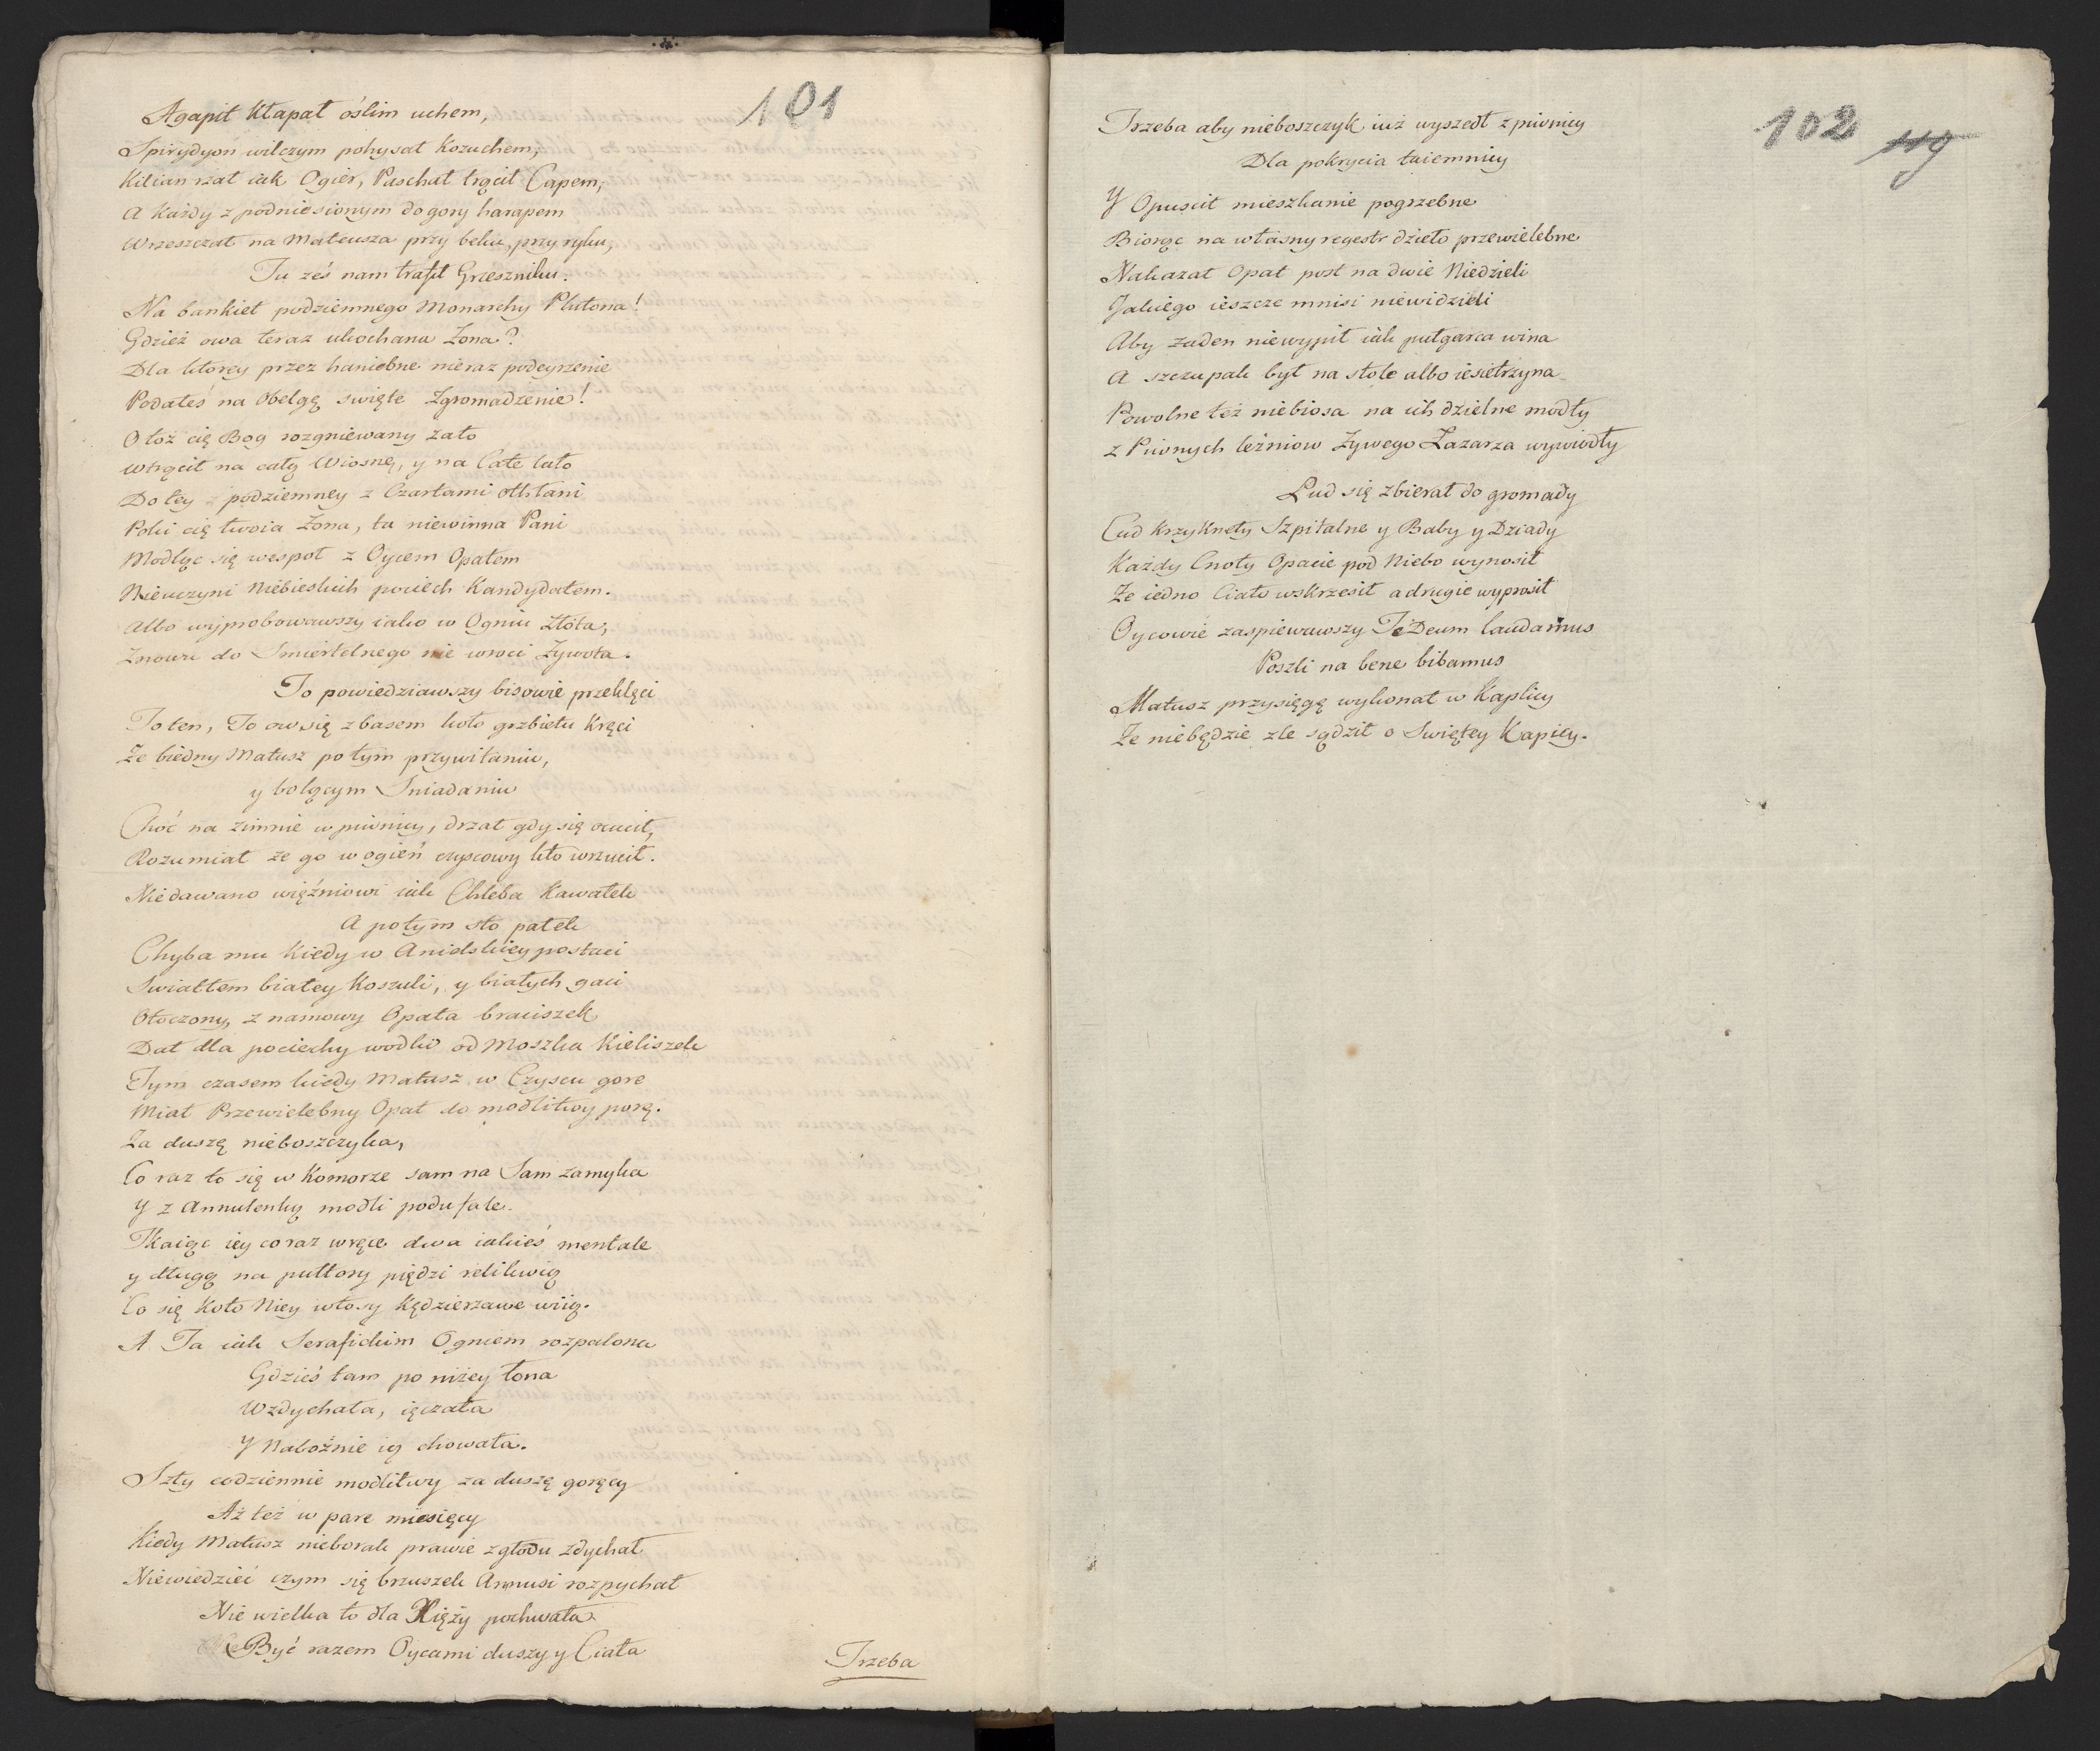 101
Agapit Kłapał oślim uchem,
Spirydyon wilczym pohysał Kożuchem,
Kilian rzał iak Ogier, Paschał trącił Capem,
A Każdy z podniesionym do gory harapem
Wrzeszczał na Mateusza przy beku, przy ryku,
Tu żeś nam trafił Grzeszniku.
Na bankiet podziemnego Monarchy Plutona!
Gdzież owa teraz ukochana Żona?
Dla ktorey przez haniebne nieraz podeyrzenie
Podałeś na Obelgę swięte Zgromadzenie!
Otoż cię Bog rozgniewany zato
Wtrącił na całą Wiosnę, y na Całe lato
Do tey podziemney z Czartami otchłani
Poki cię twoia Żona, ta niewinna Pani
Modląc się wespoł z Oycem Opatem
Nieuczyni Niebieskich pociech Kandydatem.
Albo wyprobowawszy iako w Ogniu Złota,
Znowu do Smiertelnego nie wroci Żywota.
To powiedziawszy bisowie przeklęci
To ten, To ow się z basem koło grzbietu Kręci
Że biedny Matusz po tym przywitaniu,
y bolącym Sniadaniu
Choć na zimnie w piwnicy, drzał gdy się ocucił,
Rozumiał że go w ogień czyscowy kto wrzucił.
Niedawano więźniowi iak Chleba Kawałek
A potym sto pałek
Chyba mu Kiedy w Anielskiey postaci
Swiatłem białey Koszuli, y białych gaci
Otoczony, z namowy Opata braciszek
Dał dla pociechy wodki od Moszka Kieliszek
Tym czasem kiedy Matusz w Czyscu gore
Miał Przewielebny Opat do modlitwy porę.
Za duszę nieboszczyka,
Co raz to się w Komorze sam na Sam zamyka
Y z Annulenką modli poufale.
Tkaiąc iey co raz wręce dwa iakieś mentale
y długą na pułtory piędzi relikwią
Co się Koło Niey włosy Kędzierzawe wiią.
A Ta iak Serafickim Ogniem rozpalona
Gdzieś tam po niżey łona
Wzdychała, ięczała
Y Nabożnie ią chowała.
Szły codziennie modlitwy za duszę gorący
Aż też w parę miesięcy
Kiedy Matusz nieborak prawie z głodu zdychał
Niewiedzieć czym się brzuszek Annusi rozpychał
Nie wielka to dla Xięży pochwała
Być razem Oycami duszy y Ciała
Trzeba
102
119
Trzeba aby nieboszczyk iuż wyszedł z piwnicy
Dla pokrycia taiemnicy
Y Opuscił mieszkanie pogrzebne
Biorąc na własny regestr dzieło przewielebne
Nakazał Opat post na dwie Niedzieli
Jakiego ieszcze mnisi niewidzieli
Aby żaden niewypił iak pułgarca wina
A szczupak był na stole albo iesietrzyna
Powolne też niebiosa na ich dzielne modły
z Piwnych leźniow Żywego Łazarza wywiodły
Lud się zbierał do gromady
Cud Krzyknęły Szpitalne y Baby y Dziady
Każdy Cnoty Opacie pod Niebo wynosił
Że iedno Ciało wskrzesił a drugie wyprosił
Oycowie zaspiewawszy Te Deum laudamus
Poszli na bene bibamus
Matusz przysięgę wykonał w Kaplicy
Że niebędzie zle sądził o Swiętey Kapicy.